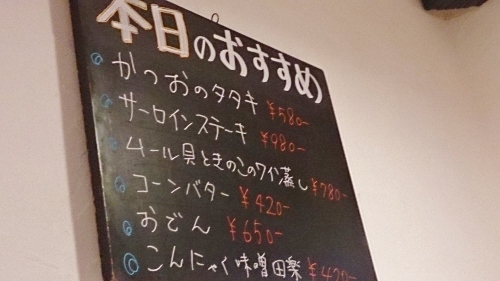 本日のおすすめ
かつおのタタキ ¥580-
サーロインステーキ ¥980-
ムール貝ときのこのワイン蒸し ¥780-
コーンバター ¥420-
おでん ¥650-
こんにゃく味噌田楽 ¥420-